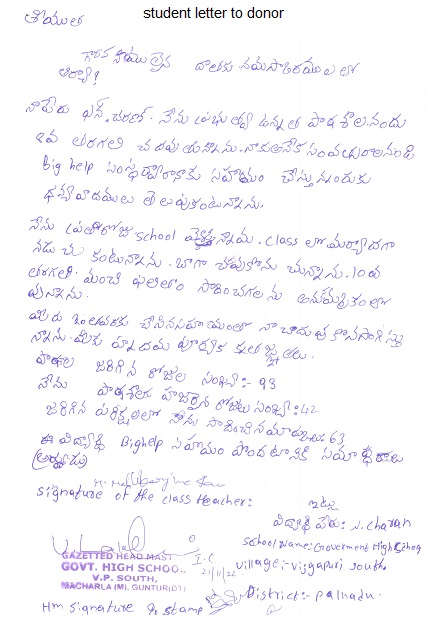 student letter to donor
శ్రీయుత
గౌరవనీయులైన దాతకు నమస్కారములలో
ఆర్యా!
నాపేరు ఎన్. చరణ్. నేను ప్రభుత్వ ఉన్నత పాఠశాలనందు
10వ తరగతి చదువుతున్నాను. నాకు అనేక సంవత్సరాలనుండి
Big help సంస్థ ద్వారా నాకు సహాయం చేస్తునందుకు
ధన్యవాదములు తెలుపుకుంటున్నాను.
నేను ప్రతిరోజు school వెళ్తున్నాను. class లో మర్యాదగా
నడుచుకుంటున్నాను. బాగా చదువుకొనుచున్నాను. 10వ
తరగతి. మంచి ఫలితం సాధించగలను అనునమ్మకంలో
వున్నాను.
మీరు ఇంతవరకు చేసిన సహాయంతో నా చదువు కొనసాగిస్తు
న్నాను. మీకు హృదయ పూర్వక కృతజ్ఞతలు.
పాఠశాల జరిగిన రోజుల సంఖ్య:- 93
నేను పాఠశాలకు హాజరైన రోజులు సంఖ్య: 42
జరిగిన పరీక్షలలో నేను సాధించిన మార్కులు: 63
ఈ విద్యార్థి Bighelp సహాయం పొందటానికి
(అర్హుడు)
signature of the class teacher:
ఇట్లు
విద్యార్థి పేరు: N. charan
school Name: Government High School
village:- vijayapuri south.
District:- palnadu.
I.C
21/11/22
GAZETTED HEAD MAST
GOVT. HIGH SCHOOL.
V.P. SOUTH,
MACHARLA (M), GUNTUR(DT)
Hm signature & stamp